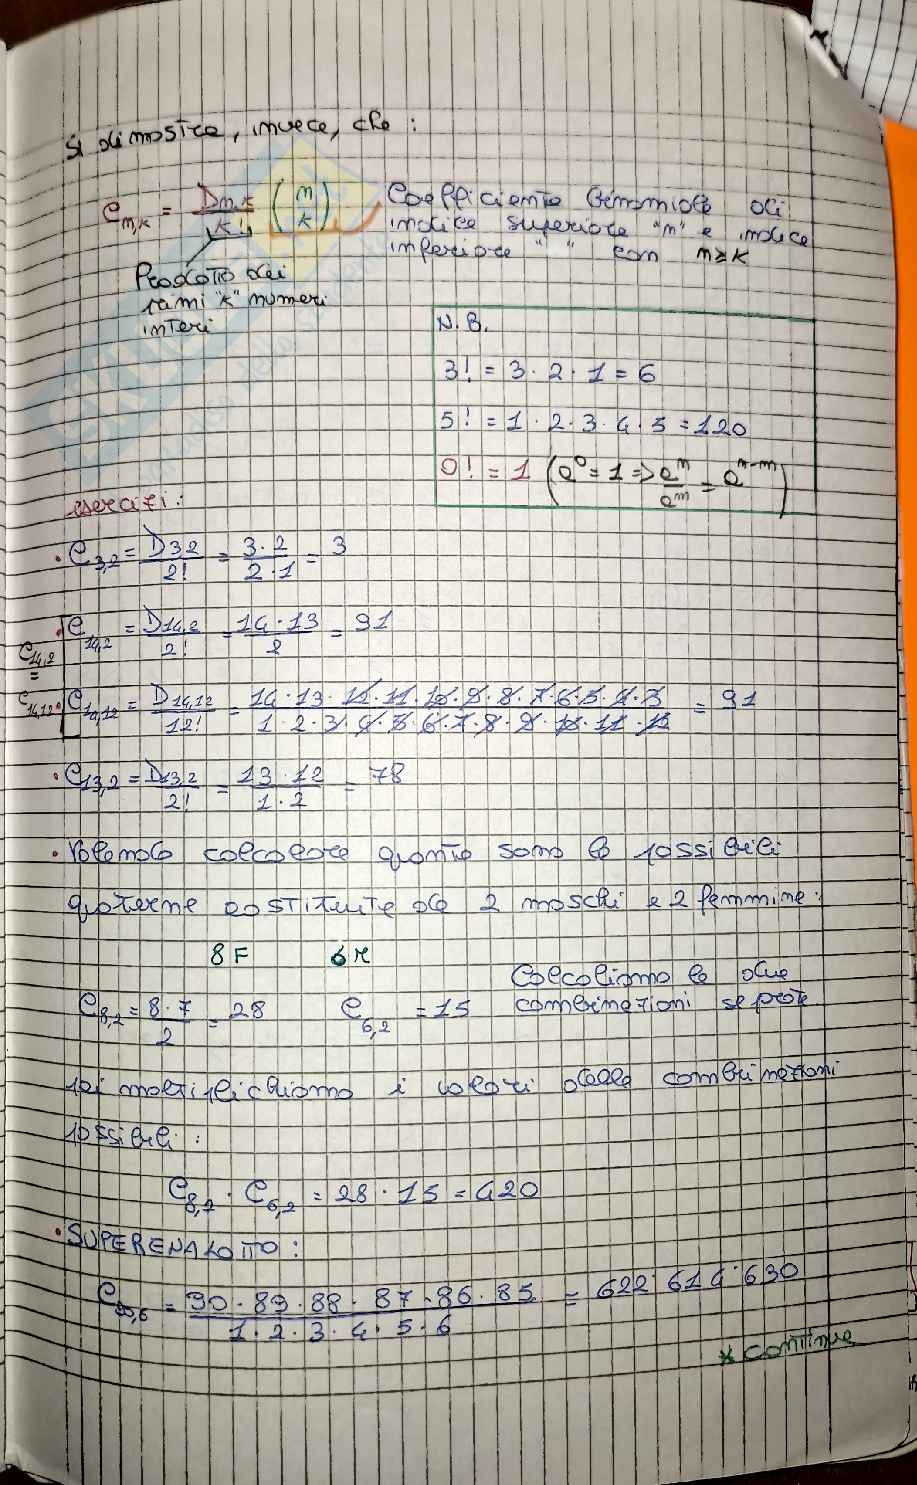 Si dimostra, invece, che :
C_{n,k} = \frac{D_{n,k}}{k!} \binom{n}{k} Coefficiente binomiale di
indice superiore "n" e indice
inferiore " " con n≥k
Prodotto dei
primi "k" numeri
interi
N.B.
3! = 3 · 2 · 1 = 6
5! = 1 · 2 · 3 · 4 · 5 = 120
0! = 1 (a^0 = 1 => \frac{a^n}{a^m} = a^{n-m})
esercizi :
• C_{3,2} = \frac{D_{3,2}}{2!} = \frac{3 · 2}{2 · 1} = 3
• C_{14,2} = \frac{D_{14,2}}{2!} = \frac{14 · 13}{2} = 91
C_{14,2} = C_{14,12}
• C_{14,12} = \frac{D_{14,12}}{12!} = \frac{14 · 13 · 12 · 11 · 10 · 9 · 8 · 7 · 6 · 5 · 4 · 3}{1 · 2 · 3 · 4 · 5 · 6 · 7 · 8 · 9 · 10 · 11 · 12} = 91
• C_{13,2} = \frac{D_{13,2}}{2!} = \frac{13 · 12}{1 · 2} = 78
• Volendo calcolare quante sono le possibili
quaterne costituite da 2 maschi e 2 femmine :
8F 6M
Calcoliamo le due
C_{8,2} = \frac{8 · 7}{2} = 28 C_{6,2} = 15 combinazioni separate
poi moltiplichiamo i valori delle combinazioni
possibili :
C_{8,2} · C_{6,2} = 28 · 15 = 420
• SUPERENALOTTO :
C_{90,6} = \frac{90 · 89 · 88 · 87 · 86 · 85}{1 · 2 · 3 · 4 · 5 · 6} = 622˙614˙630
* continua